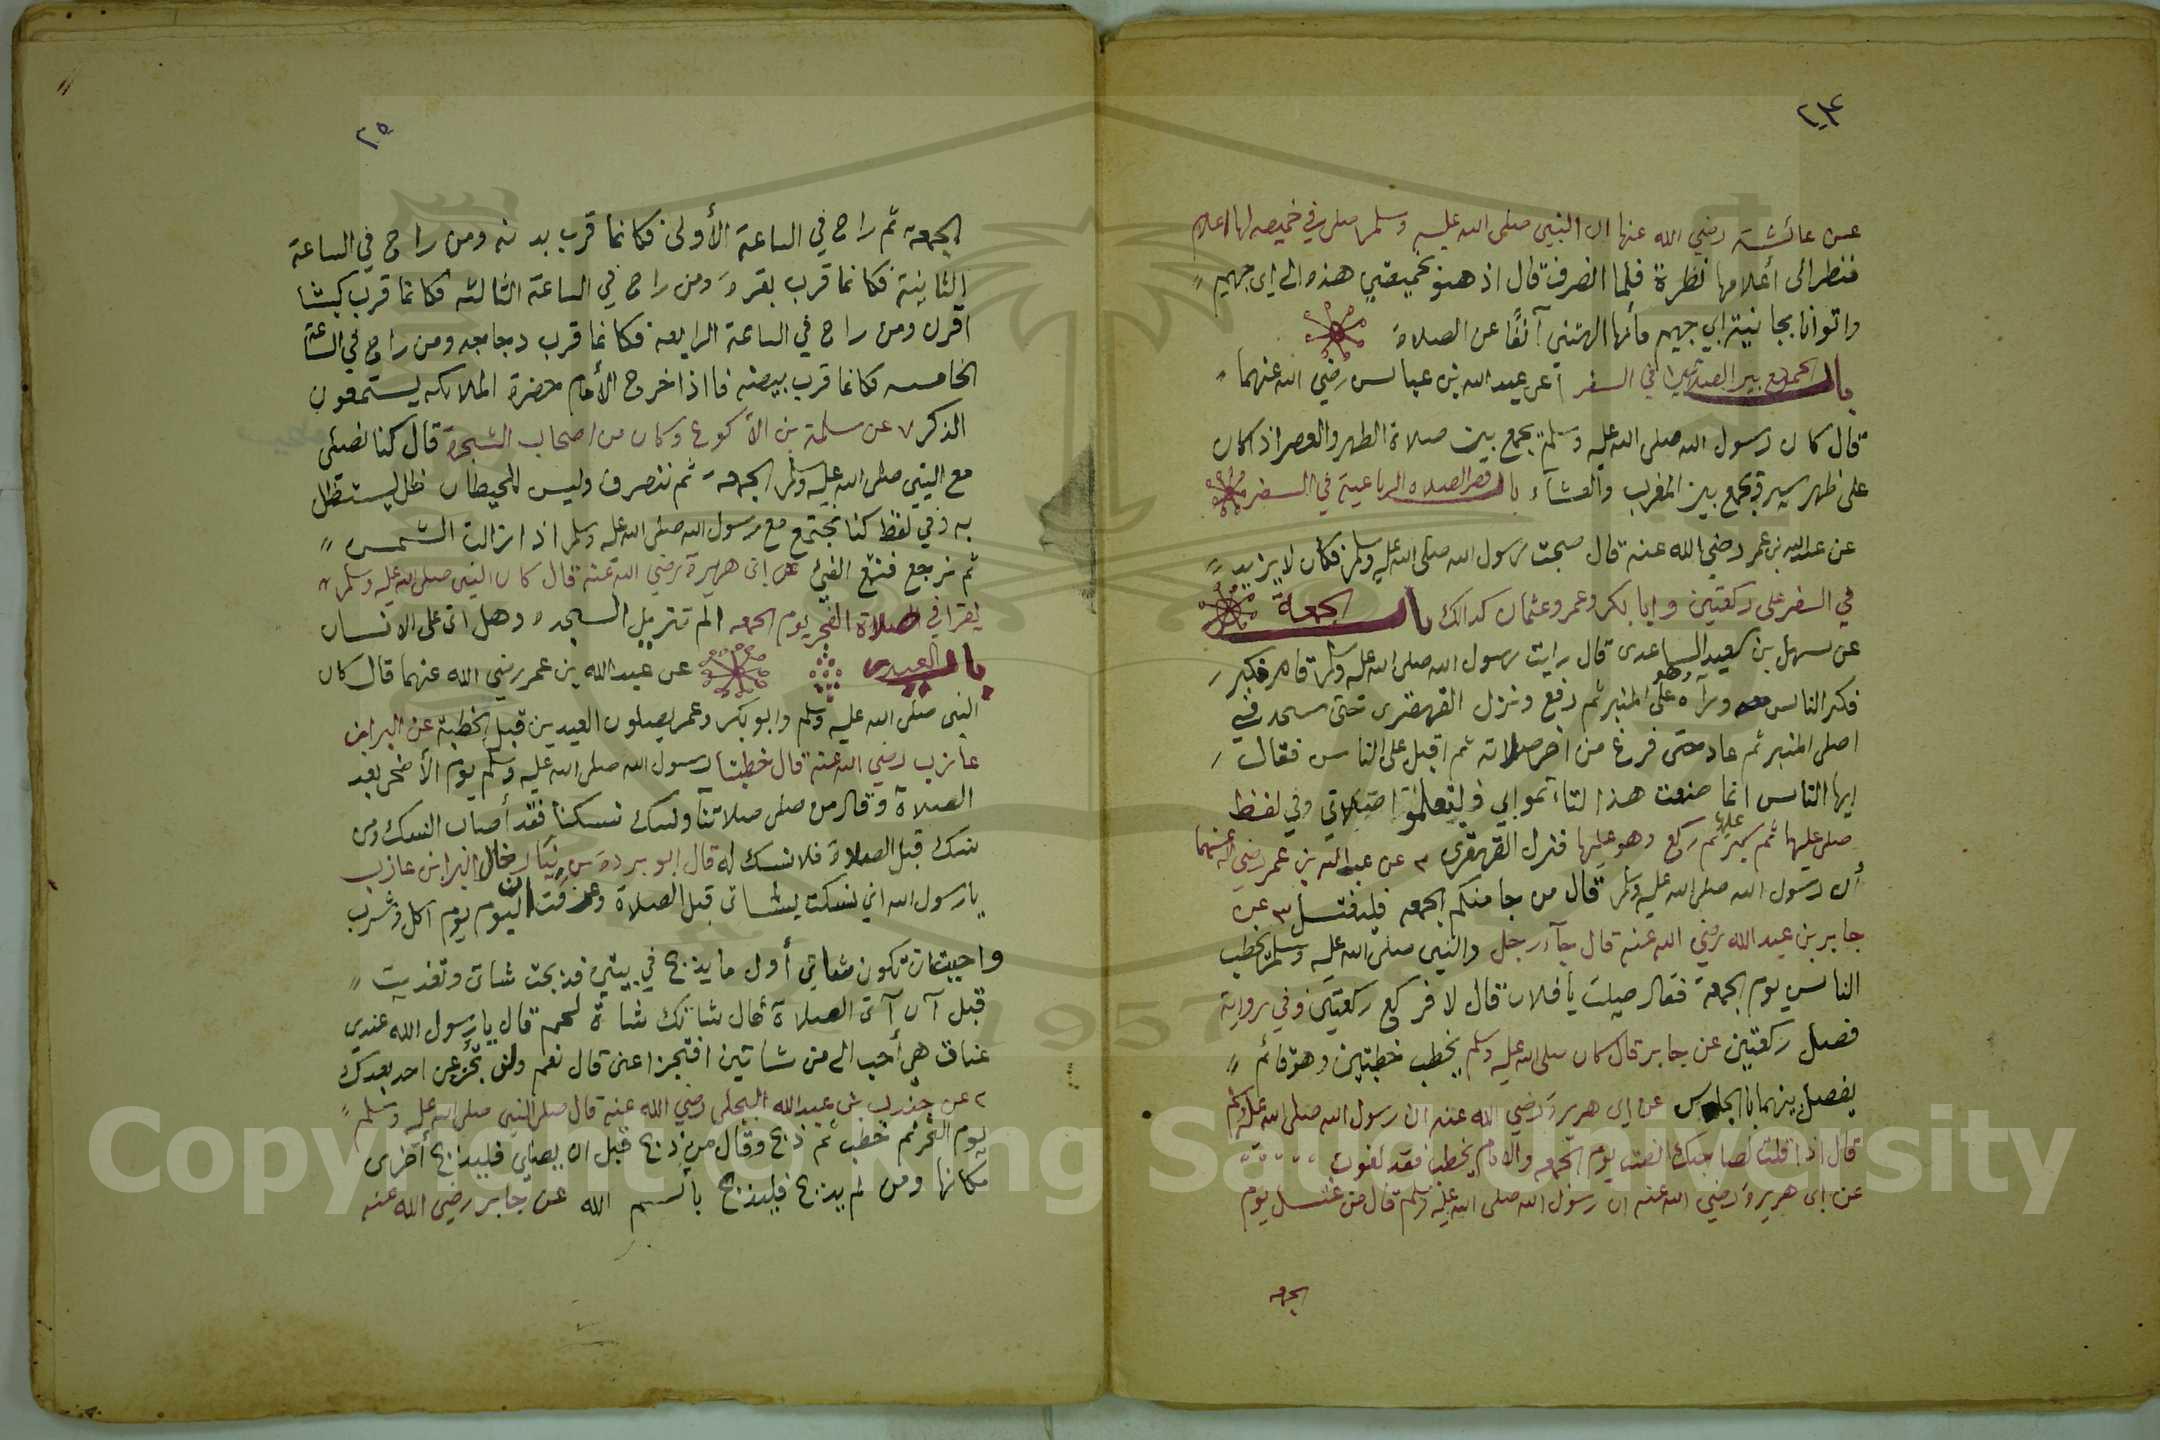 ٢٤
عن عائشة رضي الله عنها ان النبي صلى الله عليه وسلم صلى في خميصه لها اعلام
فنظر الى أعلامها نظرة فلما انصرف قال اذهبو بخميصتي هذه الى ابي جهيم
واتوانا بجانية ابي جهيم فأنها الهتني آنفًا عن الصلاة
باب الجمع بين الصلاتين في السفر عن عبد الله بن عباس رضي الله عنهما
قال كان رسول الله صلى الله عليه وسلم يجمع بين صلاة الظهر والعصر اذا كان
على ظهر سير ويجمع بين المغرب والعشآء باب قصر الصلاه الرباعية في السفر
عن عبد الله بن عمر رضي الله عنه قال صحبت رسول الله صلى الله عليه وسلم فكان لا يزيد
في السفر على ركعتين وابا بكر وعمر وعثمان كذالك باب الجمعة
عن سهل بن سعيد الساعدى قال رايت رسول الله صلى الله عليه وسلم قام فكبر
فكبر الناس ورآه وهو على المنبر ثم رفع ونزل القهقرى حتى سجد في
اصل المنبر ثم عاد حتى فرغ من اخر صلاته ثم اقبل على الناس فقال
ايها الناس انما صنعت هذا لتاتموابي ولتعلمو اصلاتي وفي لفظ
صلى عليها ثم كبر عليها ثم ركع وهو عليها فنزل القهقرى ٣ عن عبد الله بن عمر رضي الله عنهما
أن رسول الله صلى الله عليه وسلم قال من جا منكم الجمعه فليغتسل ٣ عن
جابر بن عبد الله رضي الله عنه قال جآء رجل والنبي صلى الله عليه وسلم يخطب
الناس يوم الجمعة فقال صليت يا فلان قال لا فركع ركعتين وفي رواية
فصل ركعتين عن جابر قال كان صلى الله عليه وسلم يخطب خطبتين وهو قائم
يفصل بينهما بالجلوس عن ابي هريرة رضي الله عنه ان رسول الله صلى الله عليه وسلم
قال اذا قلت لصاحبك انصت يوم الجمعه والامام يخطب فقد لغوت
عن ابي هريرة رضي الله عنه ان رسول الله صلى الله عليه وسلم قال من غتسل يوم
الجمعه
٢٥
الجمعه ثم راح في الساعة الأولى فكانما قرب بدنه ومن راح في الساعة
الثانية فكانما قرب بقرة ومن راح في الساعة الثالثه فكانما قرب كبشا
اقرن ومن راح في الساعة الرابعه فكانما قرب دجاجه ومن راح في الساعة
الخامسه فكانما قرب بيضه فااذا خرج الأمام حضرة الملائكه يستمعون
الذكر ٧ عن سلمة بن الأكوع وكان من اصحاب الشجرة قال كنا نصلى
مع النبي صلى الله عليه وسلم الجمعة ثم ننصرف وليس للحيطان ظل يستظل
به وفي لفظ كنا نجتمع مع رسول الله صلى الله عليه وسلم اذا زالت الشمس
ثم نرجع فنتبع الفيئ عن ابى هريرة رضي الله عنه قال كان النبي صلى الله عليه وسلم
يقرا في صلاة الفجر يوم الجمعه الم تنزيل السجده وهل اتى على الانسان
باب العيدين عن عبد الله بن عمر رضي الله عنهما قال كان
النبى صلى الله عليه وسلم وابو بكر وعمر يصلون العيدين قبل الخطبة عن البرا بن
عازب رضي الله عنه قال خطبنا رسول الله صلى الله عليه وسلم يوم الأضحى بعد
الصلاة وقال من صلى صلاتنآ ونسك نسكنا فقد أصاب النسك ومن
نسك قبل الصلاة فلا نسك له قال ابو بردة بن نيار خال البرا بن عازب
يارسول الله اني نسكت شاتى قبل الصلاة وعرفت ان اليوم يوم اكل وشرب
واحببت ان تكون شاتي أول مايذبح في بيتي فذبحت شاتى وتغديت
قبل آن آتى الصلاة قال شاتك شاة لحم قال يا رسول الله عندي
عناق هي أحب الى من شاتين افتجزا عنى قال نعم ولن تجزئ عن احد بعدك
٢ عن جندب بن عبد الله البجلى رضي الله عنه قال صلى النبي صلى الله عليه وسلم
يوم النحر ثم خطب ثم ذبح وقال من ذبح قبل ان يصلي فليذبح أخرى
مكانها ومن لم يذبح فليذبح بأسم الله عن جابر رضي الله عنه
Copyright © King Saud University
1957